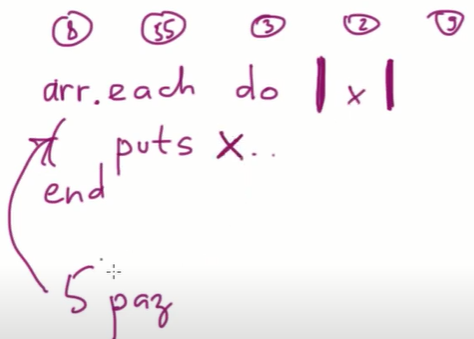 8 55 3 2 9
arr.each do |x|
puts x..
end
5 раз